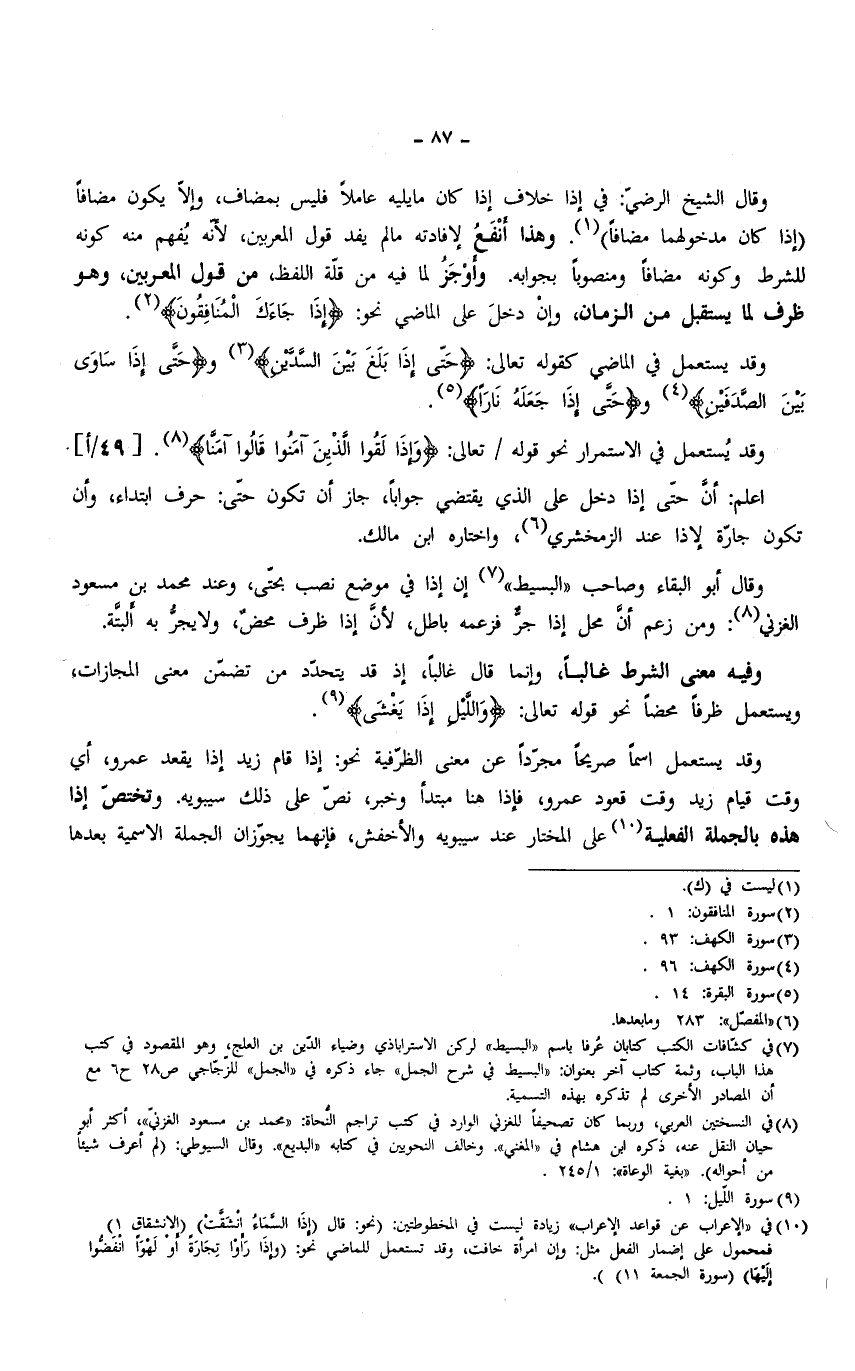 - ٨٧ -
وقال الشيخ الرضيّ: في إذا خلاف إذا كان مايليه عاملاً فليس بمضاف، وإلاّ يكون مضافاً
(إذا كان مدخولهما مضافاً)(١). وهذا أَنْفَعُ لإفادته مالم يفد قول المعربين، لأنّه يُفهم منه كونه
للشرط وكونه مضافاً ومنصوباً بجوابه. وأَوْجَزُ لما فيه من قلّة اللفظ، من قـول المعـربين، وهـو
ظرف لما يستقبل مـن الـزمـان، وإنْ دخلَ على الماضي نحو: ﴿إِذَا جَاءَكَ الْمُنَافِقُونَ﴾(٢).
وقد يستعمل في الماضي كقوله تعالى: ﴿حَتّى إِذَا بَلَغَ بَيْنَ السَّدَّيْنِ﴾(٣) و﴿حَتَّى إِذَا سَاوَى
بَيْنَ الصَّدَفَيْنِ﴾(٤) و﴿حَتَّى إِذَا جَعَلَهُ نَارَاً﴾(٥).
وقد يُستعمل في الاستمرار نحو قوله / تعالى: ﴿وَإِذَا لَقُوا الَّذِينَ آمَنُوا قَالُوا آمَنَّا﴾(٨). [٤٩/أ]
اعلم: أنَّ حتّى إذا دخل على الذي يقتضي جواباً، جاز أن تكون حتّى: حرف ابتداء، وأن
تكون جارّة لإذا عند الزمخشري(٦)، واختاره ابن مالك.
وقال أبو البقاء وصاحب «البسيط»(٧) إن إذا في موضع نصب بحتّى، وعند محمد بن مسعود
الغزني(٨): ومن زعم أنَّ محل إذا جرٌّ فزعمه باطل، لأنَّ إذا ظرف محضٌ، ولايجرُّ به ألبتَّة.
وفيـه معنى الشرط غـالبـاً، وإنما قال غالباً، إذ قد يتجدّد من تضمّن معنى المجازات،
ويستعمل ظرفاً محضاً نحو قوله تعالى: ﴿وَاللَّيْلِ إِذَا يَغْشَى﴾(٩).
وقد يستعمل اسماً صريحاً مجرّداً عن معنى الظرّفية نحو: إذا قام زيد إذا يقعد عمرو، أي
وقت قيام زيد وقت قعود عمرو، فإذا هنا مبتدأ وخبر، نصّ على ذلك سيبويه. وتختصّ إذا
هذه بالجملة الفعليـة(١٠) على المختار عند سيبويه والأخفش، فإنهما يجوّزان الجملة الاسمية بعدها
(١) ليست في (ك).
(٢) سورة المنافقون: ١ .
(٣) سورة الكهف: ٩٣ .
(٤) سورة الكهف: ٩٦ .
(٥) سورة البقرة: ١٤ .
(٦) «المفصّل»: ٢٨٣ ومابعدها.
(٧) في كشّافات الكتب كتابان عُرفا باسم «البسيط» لركن الاستراباذي وضياء الدّين بن العلج، وهو المقصود في كتب
هذا الباب، وثمة كتاب آخر بعنوان: «البسيط في شرح الجمل» جاء ذكره في «الجمل» للزّجّاجي ص٢٨ ح٦ مع
أن المصادر الأخرى لم تذكره بهذه التسمية.
(٨) في النسختين العربي، وربما كان تصحيفاً للغزني الوارد في كتب تراجم النُّحاة: «محمد بن مسعود الغزنيّ»، أكثر أبو
حيان النقل عنه، ذكره ابن هشام في «المغني». وخالف النحويين في كتابه «البديع». وقال السيوطي: (لم أعرف شيئاً
من أحواله). «بغية الوعاة»: ٢٤٥/١ .
(٩) سورة اللّيل: ١ .
(١٠) في «الإعراب عن قواعد الإعراب» زيادة ليست في المخطوطتين: (نحو: قال (إِذَا السَّمَاءُ انْشَقَّتْ) (الانشقاق ١)
فمحمول على إضمار الفعل مثل: وإن امرأة خافت، وقد تستعمل للماضي نحو: (وإِذَا رَأَوْا تِجَارَةً أَوْ لَهْوَاً انْفَضُّوا
إِلَيْهَا) (سورة الجمعة ١١) ).